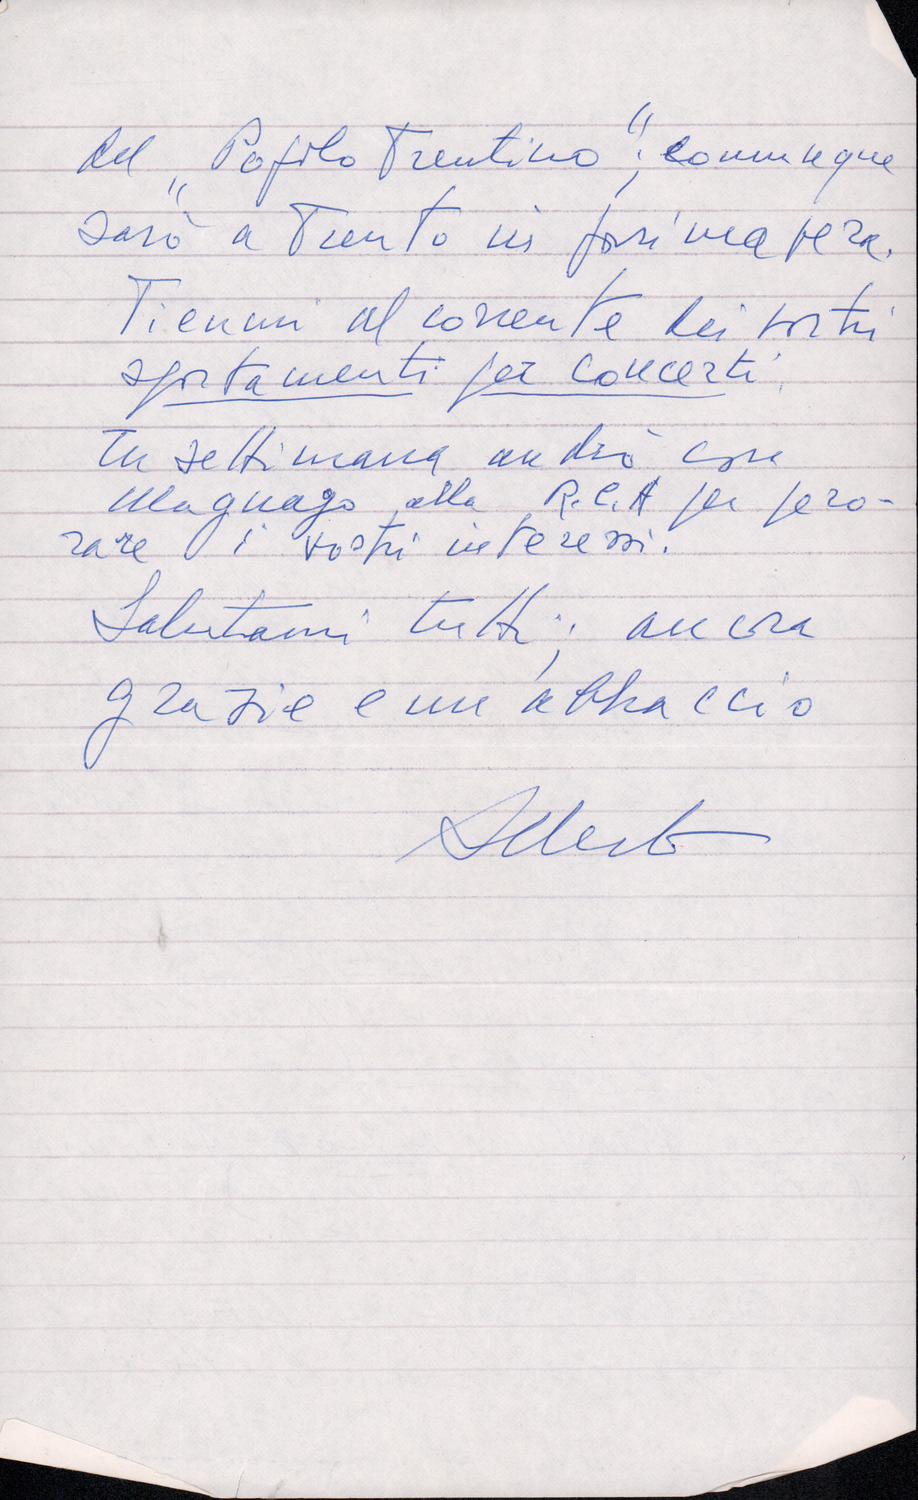 del „Popolo Trentino“; comunque
sarò a Trento in primavera.
Tienmi al corrente dei vostri
spostamenti per concerti.
In settimana andrò con
Magnago alla R.C.A per pero-
rare i vostri interessi.
Salutami tutti; ancora
grazie e un abbraccio